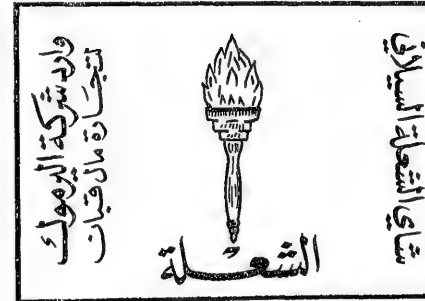 شاي الشعلة السيلاني
الشعلة
وارد شركة اليرموك
لتجارة مال قبان